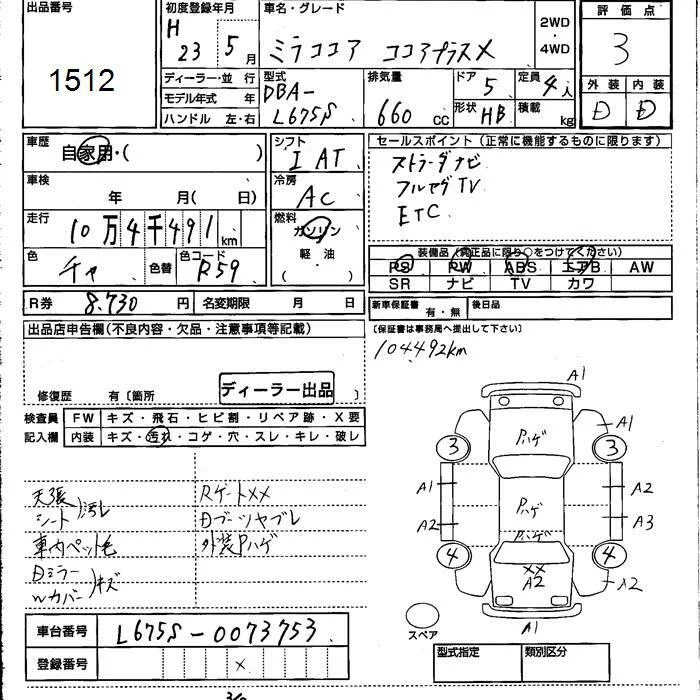 出品番号
1512
初度登録年月
H
23 5月
車名・グレード
ミラココア ココアプラスX
2WD
・
4WD
評価点
3
外装 内装
D D
ディーラー・並行
モデル年式 年
ハンドル 左・右
型式
DBA-
L675S
排気量
660 CC
ドア
5
形状 HB
定員
4人
積載
kg
車歴
自家用・( )
車検
年 月( 日)
走行
10万4千491km
色
チャ
色替
色コード
R59
シフト
I AT
冷房
AC
燃料
ガソリン
軽・油
( )
セールスポイント(正常に機能するものに限ります)
ストラーダナビ
フルセグTV
ETC
装備品(純正品に限り○をつけてください)
PS PW ABS エアB AW
SR ナビ TV カワ
R券 8.730円 名変期限 月 日
新車保証書 有・無 後日品
(保証書は事務局へ提出して下さい)
104,492km
出品店申告欄(不良内容・欠品・注意事項等記載)
修復歴 有〔箇所 〕
ディーラー出品
検査員 FW キズ・飛石・ヒビ割・リペア跡・X要
記入欄 内装 キズ・汚れ・コゲ・穴・スレ・キレ・破レ
天張
シート
汚レ
車内ペット毛
Dミラー
Wカバー
キズ
RゲートXX
Dブーツヤブレ
外装Pハゲ
A1
A1
Pハゲ
3 3
A1 A2
Pハゲ
A2 A3
Pハゲ
4 4
XX
A2
A2
A1
スペア
車台番号 L675S-0073753
登録番号 ×
型式指定 類別区分